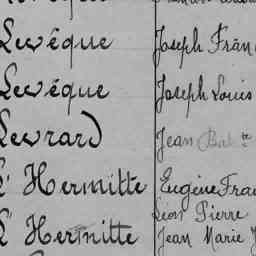 Levéque Joseph Fran
Levéque Joseph Louis
Levrard Jean Bat te
L' Hermitte Eugène Fra
Léon Pierre
L' Hermitte Jean Marie